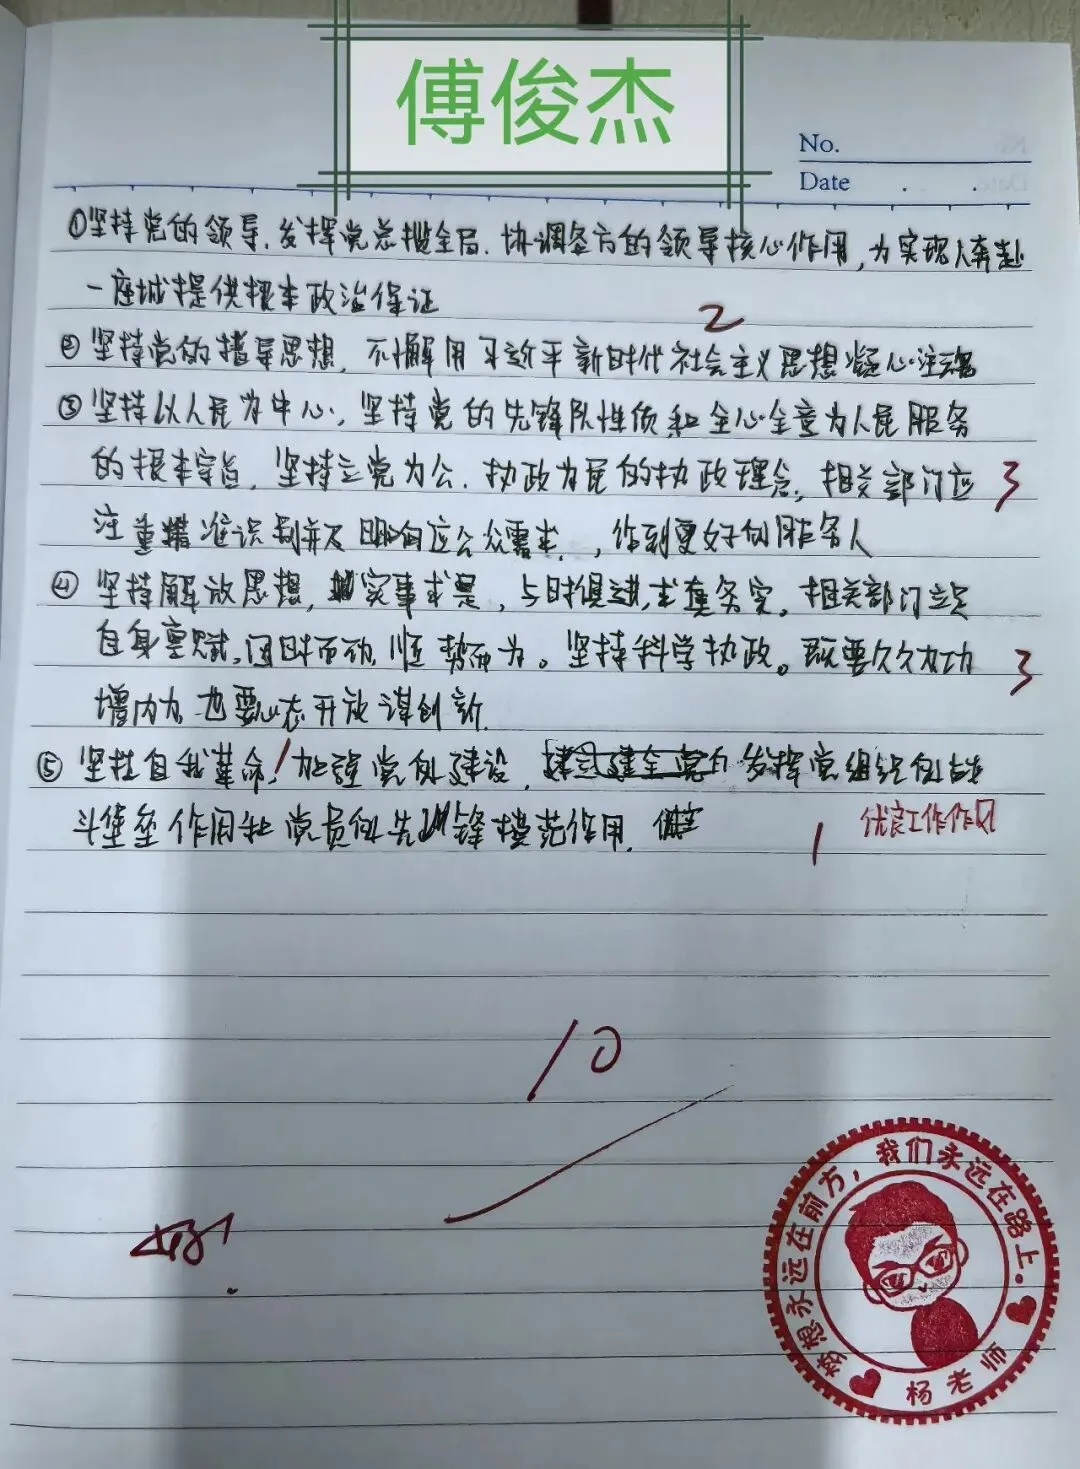 傅俊杰
No.
Date
①坚持党的领导,发挥党总揽全局、协调各方的领导核心作用,为实现人奔赴
一座城提供根本政治保证
2
②坚持党的指导思想,不懈用习近平新时代社会主义思想凝心注魂
③坚持以人民为中心,坚持党的先锋队性质和全心全意为人民服务
的根本宗旨,坚持立党为公、执政为民的执政理念,相关部门应
3
注重精准识别并及时响应公众需求,作到更好的服务人
④坚持解放思想,实事求是,与时俱进,求真务实,相关部门立足
自身禀赋,因时而动,顺势而为。坚持科学执政。既要久久为功
3
增内力,也要心态开放谋创新
⑤坚持自我革命,加强党的建设,发挥党组织的战
斗堡垒作用和党员的先锋模范作用,
1
优良工作作风
10
好!
梦想永远在前方,我们永远在路上。
杨老师